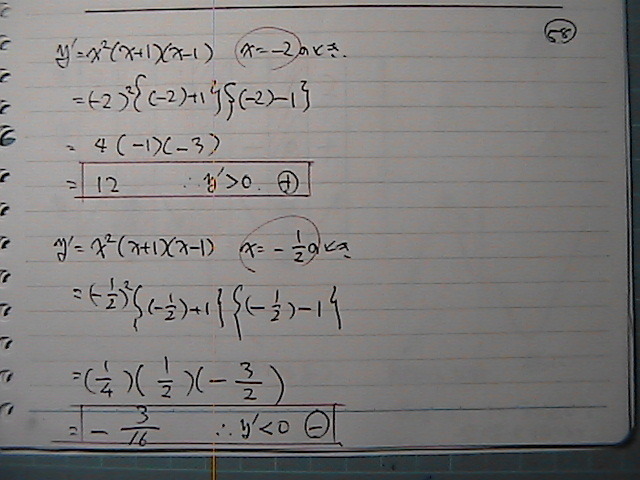 58
y'=x²(x+1)(x-1) x=-2のとき.
=(-2)²{(-2)+1}{(-2)-1}
= 4(-1)(-3)
= 12 ∴y'>0. ⊕
y'=x²(x+1)(x-1) x=-1/2のとき
=(-1/2)²{(-1/2)+1}{(-1/2)-1}
=(1/4)(1/2)(-3/2)
= -3/16 ∴y'<0 ⊖